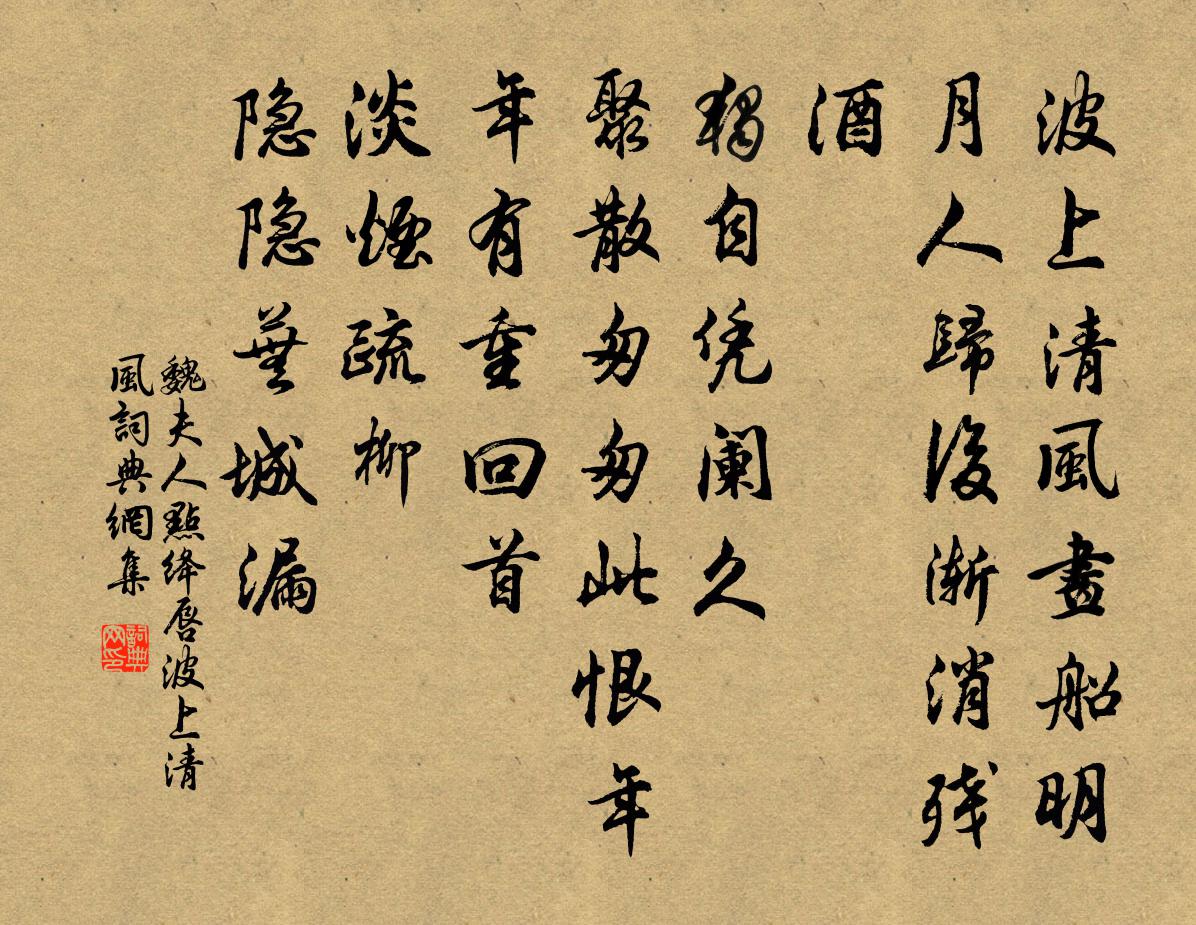 波上清風畫船明
月人歸後渐消残
酒
獨自凭阑久
聚散匆匆此恨年
年有重回首
淡煙疏柳
隐隐蕪城漏
魏夫人點绛唇波上清
風詞典網集
詞典
网印